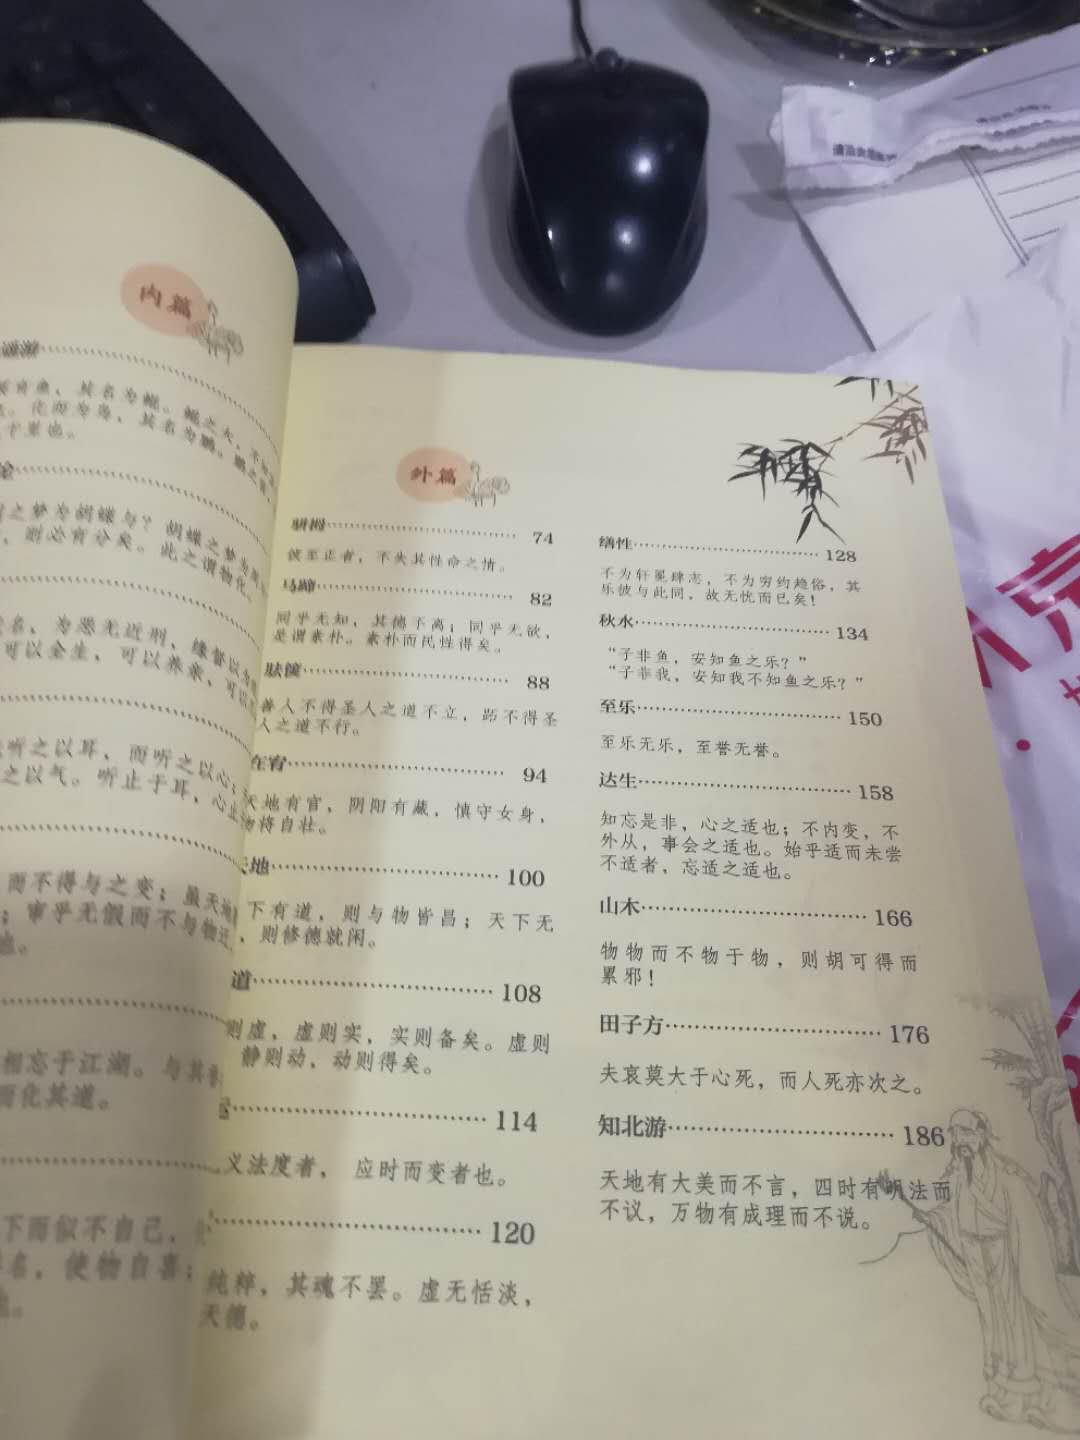 内篇
其名为鲲。鲲之大，不知
化而为鸟，其名为鹏。鹏之背，
千里也。
之梦为胡蝶与？胡蝶之梦为
则必有分矣。此之谓物化。
名，为恶无近刑，缘督以为
可以全生，可以养亲，可以
听之以耳，而听之以心；
之以气。听止于耳，心止
而不得与之变；虽天地
；审乎无假而不与物迁
也。
相忘于江湖。与其
而化其道。
下而似不自己，
名，使物自喜；
外篇
骈拇 74
彼至正者，不失其性命之情。
马蹄 82
同乎无知，其德不离；同乎无欲，
是谓素朴。素朴而民性得矣。
胠箧 88
善人不得圣人之道不立，跖不得圣
人之道不行。
在宥 94
天地有官，阴阳有藏，慎守女身，
物将自壮。
天地 100
下有道，则与物皆昌；天下无
，则修德就闲。
道 108
则虚，虚则实，实则备矣。虚则
静则动，动则得矣。
114
义法度者，应时而变者也。
120
纯粹，其魂不罢。虚无恬淡，
天德。
缮性 128
不为轩冕肆志，不为穷约趋俗，其
乐彼与此同，故无忧而已矣！
秋水 134
“子非鱼，安知鱼之乐？”
“子非我，安知我不知鱼之乐？”
至乐 150
至乐无乐，至誉无誉。
达生 158
知忘是非，心之适也；不内变，不
外从，事会之适也。始乎适而未尝
不适者，忘适之适也。
山木 166
物物而不物于物，则胡可得而
累邪！
田子方 176
夫哀莫大于心死，而人死亦次之。
知北游 186
天地有大美而不言，四时有明法而
不议，万物有成理而不说。